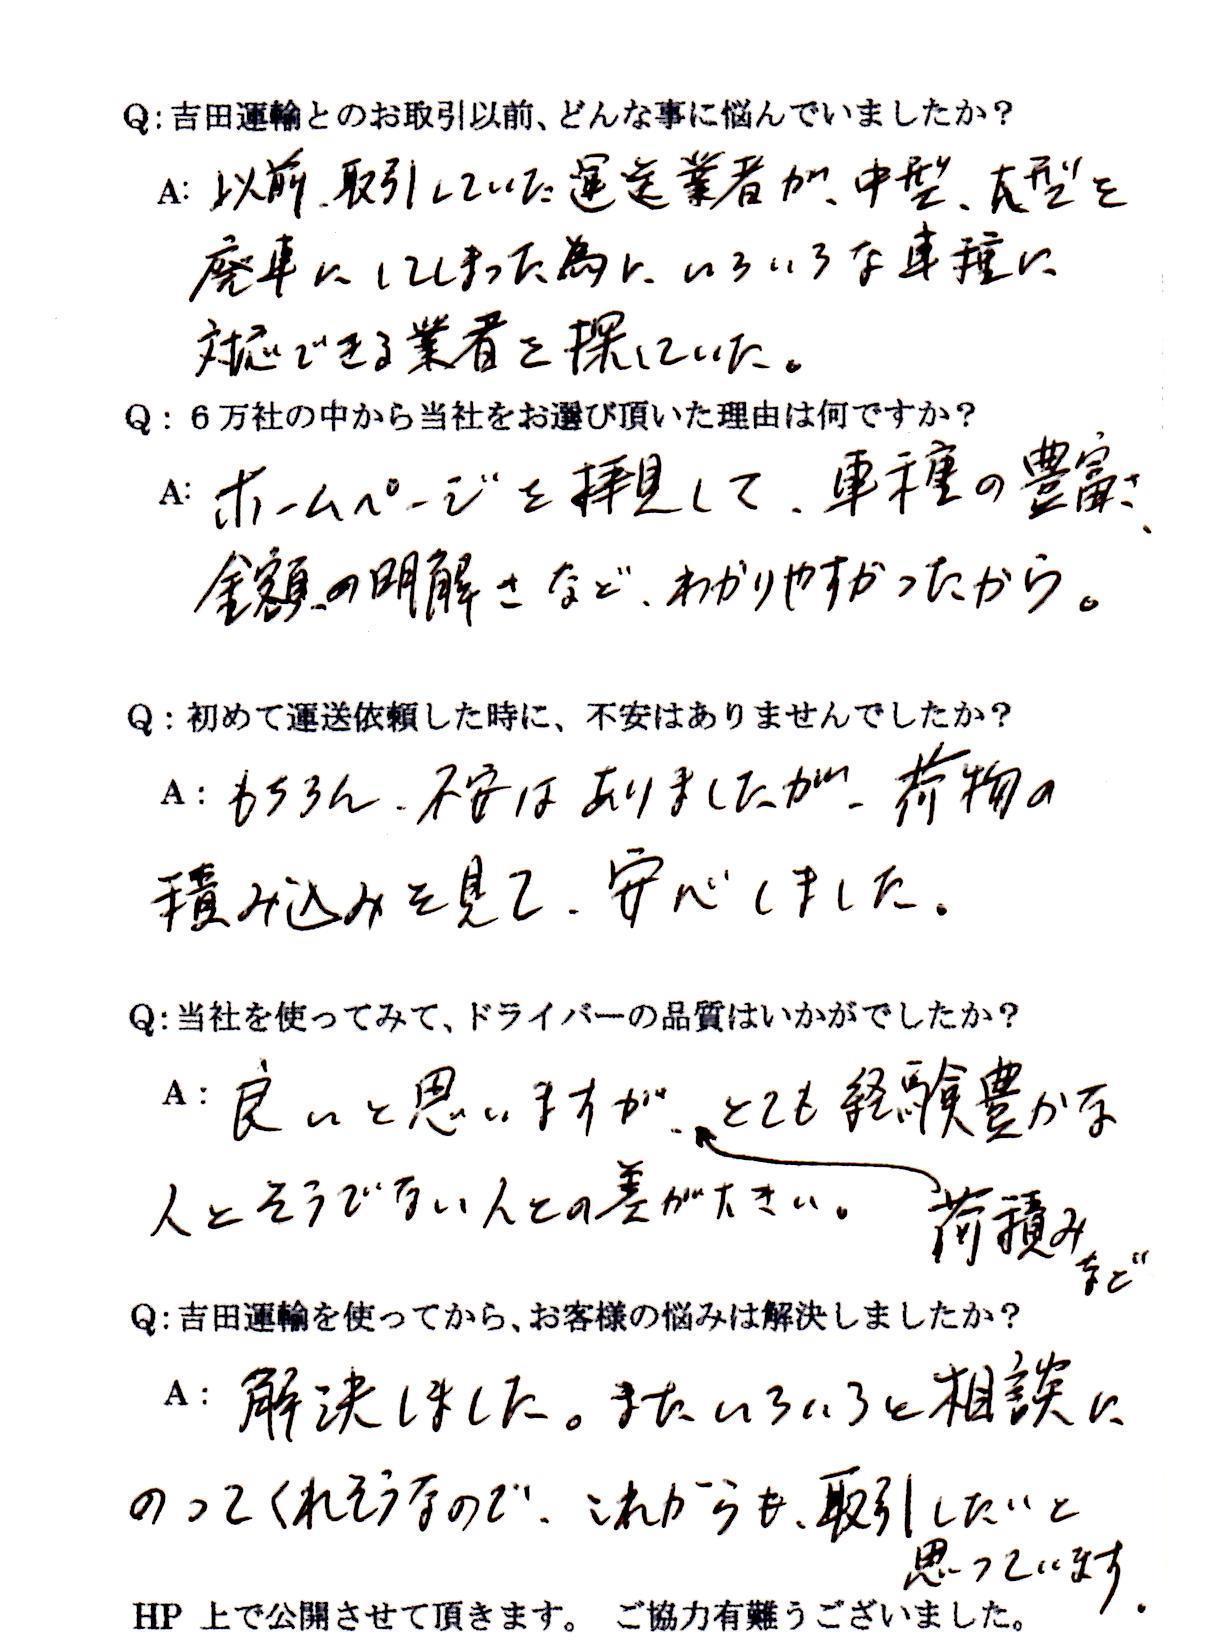 Q:吉田運輸とのお取引以前、どんな事に悩んでいましたか？
A: 以前、取引していた運送業者が、中型、大型を
廃車にしてしまった為に、いろいろな車種に
対応できる業者を探していた。
Q: 6万社の中から当社をお選び頂いた理由は何ですか？
A: ホームページを拝見して、車種の豊富さ、
金額の明解さなど、わかりやすかったから。
Q: 初めて運送依頼した時に、不安はありませんでしたか？
A: もちろん、不安はありましたが、荷物の
積み込みを見て、安心しました。
Q:当社を使ってみて、ドライバーの品質はいかがでしたか？
A: 良いと思いますが、とても経験豊かな
人とそうでない人との差が大きい。
荷積み
など
Q:吉田運輸を使ってから、お客様の悩みは解決しましたか？
A: 解決しました。またいろいろと相談に
のってくれそうなので、これからも、取引したいと
思っています。
HP 上で公開させて頂きます。 ご協力有難うございました。